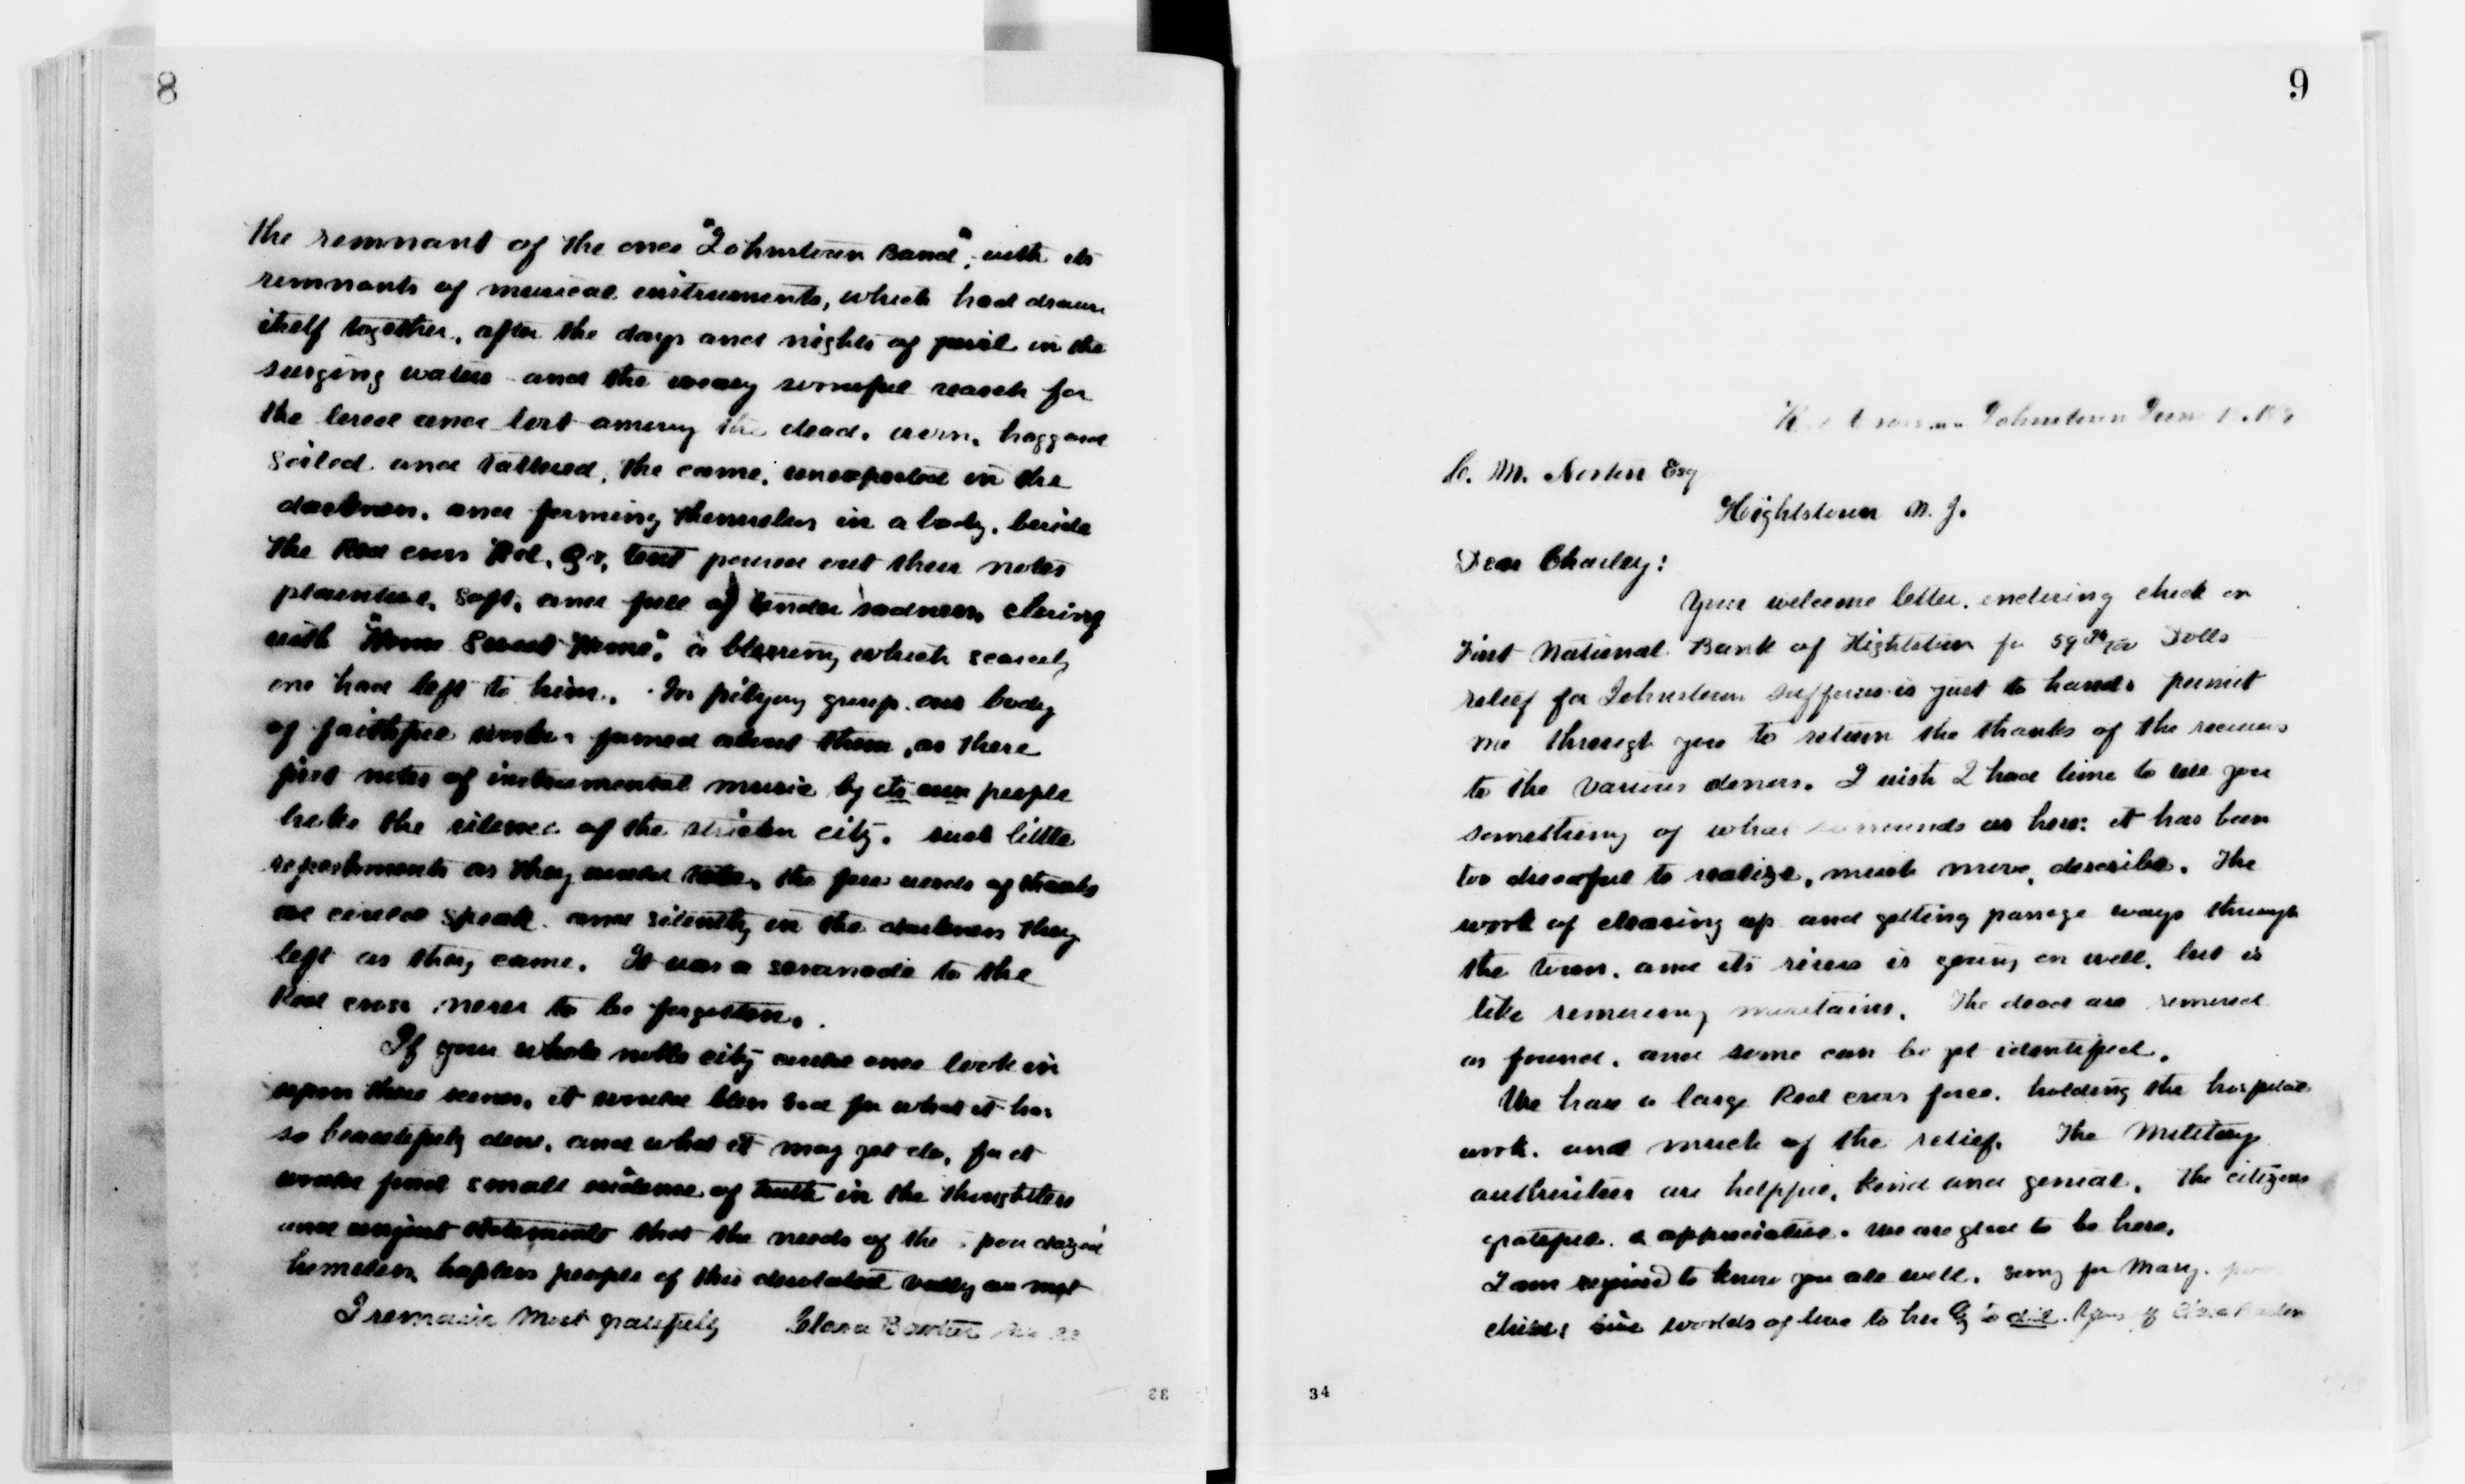 8
the remnant of the once "Johnstown Band", with its
remnants of musical instruments, which had drawn
itself together, after the days and nights of peril in the
surging water and the weary sorrowful search for
the loved and lost among the dead. worn, haggard
soiled and tattered, the came, unexpected in the
darkness, and forming themselves in a body, beside
the Red cross Hd. Qr, tent poured out their notes
plaintive, soft, and full of tender sadness closing
with "Home Sweet Home", a blessing which scarcely
one had left to him. In pitying group our body
of faithful workers formed about them, as there
first notes of instrumental music by its own people
broke the silence of the stricken city. such little
refreshments as they would take, the few words of thanks
we could speak and silently in the darkness they
left as they came. It was a seranade to the
Red cross never to be forgotten.
If your whole noble city could once look in
upon these scenes, it would bless God for what it has
so beautifully done, and what it may yet do, for it
would find small evidence of truth in the thoughtless
and unjust statements that the needs of the poor dazed
homeless, hapless people of this desolated valley are met
I remain Most gratefully Clara Barton
33
9
Johnstown June
C. M. Norton Esq
Hightstown N. J.
Dear Charley:
Your welcome letter, enclosing check on
First National Bank of Hightstown for 59 Dolls
relief for Johnstown sufferers is just to hand. permit
me through you to return the thanks of the receivers
to the various donors. I wish I had time to tell you
something of what surrounds us here: it has been
too dreadful to realize, much more, describe. The
work of clearing up and getting passage ways through
the town, and its rivers is going on well, but is
like removing mountains. The dead are removed
as found, and some can be yet identified.
We have a large Red cross force, holding the hospital
work, and much of the relief. The Military
authorities are helpful, kind and genial. The citizens
grateful & appreciative. We are glad to be here.
I am rejoiced to know you are well, sorry for Mary.
child: give worlds of love to her Clara Barton
34